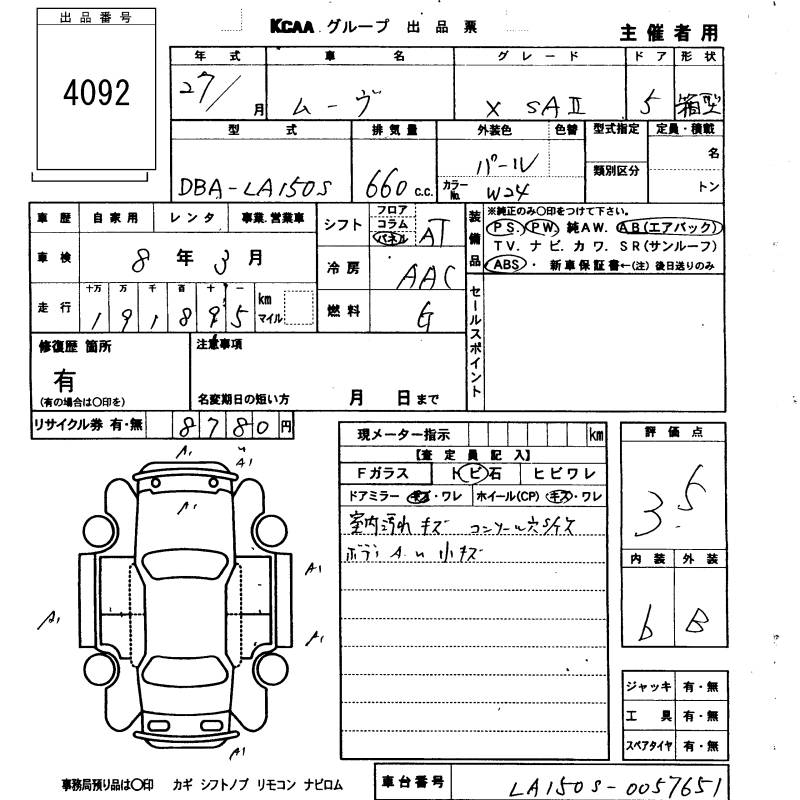 出品番号
4092
KCAA グループ 出品票
主催者用
年式 車名 グレード ドア 形状
27/ 月 ムーヴ X SAⅡ 5 箱型
型式 排気量 外装色 色替 型式指定 定員・積載
パール 名
類別区分
DBA-LA150S 660 c.c. カラーNo. W24 トン
車歴 自家用 レンタ 事業.営業車
シフト フロア コラム パネル AT
装備品
※純正のみ○印をつけて下さい。
PS. PW. 純AW. AB(エアバック)
TV. ナビ. カワ. SR(サンルーフ)
ABS ・ 新車保証書←(注) 後日送りのみ
車検 8年 3月
冷房 AAC
走行 十万 万 千 百 十 一 km マイル
1 9 1 8 9 5
燃料 G
セールスポイント
修復歴 箇所
有
(有の場合は○印を)
注意事項
名変期日の短い方 月 日まで
リサイクル券 有・無 8780 円
現メーター指示 km
【査定員記入】
Fガラス トビ石 ヒビワレ
ドアミラー キズ・ワレ ホイール(CP) キズ・ワレ
室内汚れ キズ コンソール穴S/ケス
ボデ A.u 小キズ
評価点
3.5
内装 外装
b B
A1
A1
A1
A1
A1
A1
A1
ジャッキ 有・無
工具 有・無
スペアタイヤ 有・無
事務局預り品は○印 カギ シフトノブ リモコン ナビロム
車台番号 LA150S-0057651